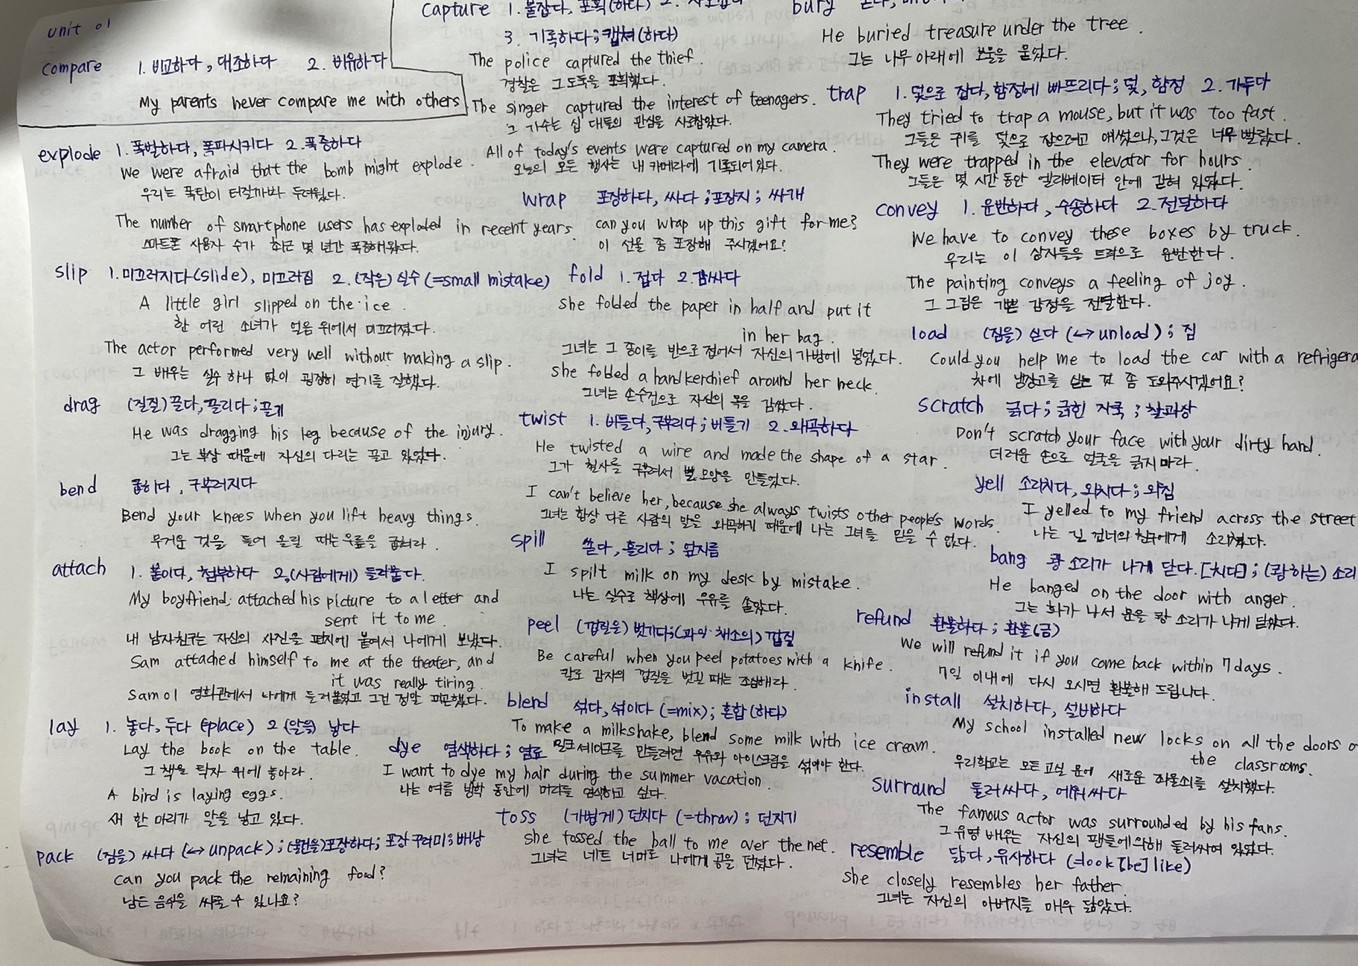 unit 01
compare 1. 비교하다, 대조하다 2. 비유하다
My parents never compare me with others
explode 1. 폭발하다, 폭파시키다 2. 폭증하다
We were afraid that the bomb might explode.
우리는 폭탄이 터질까봐 두려웠다.
The number of smartphone users has exploded in recent years
스마트폰 사용자 수가 최근 몇 년간 폭증해왔다.
slip 1. 미끄러지다(slide), 미끄러짐 2. (작은) 실수 (=small mistake)
A little girl slipped on the ice.
한 어린 소녀가 얼음 위에서 미끄러졌다.
The actor performed very well without making a slip.
그 배우는 실수 하나 없이 굉장히 연기를 잘했다.
drag (질질) 끌다, 끌리다; 끌기
He was dragging his leg because of the injury.
그는 부상 때문에 자신의 다리는 끌고 있었다.
bend 굽히다, 구부러지다
Bend your knees when you lift heavy things.
무거운 것을 들어 올릴 때는 무릎을 굽혀라.
attach 1. 붙이다, 첨부하다 2. (사람에게) 들러붙다.
My boyfriend attached his picture to a letter and
sent it to me.
내 남자친구는 자신의 사진을 편지에 붙여서 나에게 보냈다.
Sam attached himself to me at the theater, and
it was really tiring.
Sam이 영화관에서 나에게 들러붙었고 그건 정말 피곤했다.
lay 1. 놓다, 두다 (place) 2 (알을) 낳다
Lay the book on the table.
그 책을 탁자 위에 놓아라.
A bird is laying eggs.
새 한 마리가 알을 낳고 있다.
pack (짐을) 싸다 (↔unpack); (물건을)포장하다; 포장 꾸러미; 배낭
can you pack the remaining food?
남은 음식을 싸줄 수 있나요?
capture 1. 붙잡다, 포획(하다) 2.
3. 기록하다; 캡쳐(하다)
The police captured the thief.
경찰은 그 도둑을 포획했다.
The singer captured the interest of teenagers.
그 가수는 십 대들의 관심을 사로잡았다.
All of today's events were captured on my camera.
오늘의 모든 행사는 내 카메라에 기록되어 있다.
wrap 포장하다, 싸다; 포장지; 싸개
can you wrap up this gift for me?
이 선물 좀 포장해 주시겠어요?
fold 1. 접다 2. 감싸다
she folded the paper in half and put it
in her bag.
그녀는 그 종이를 반으로 접어서 자신의 가방에 넣었다.
she folded a handkerchief around her neck.
그녀는 손수건으로 자신의 목을 감쌌다.
twist 1. 비틀다, 구부리다; 비틀기 2. 왜곡하다
He twisted a wire and made the shape of a star.
그가 철사를 구부려서 별 모양을 만들었다.
I can't believe her, because she always twists other people's words
그녀는 항상 다른 사람의 말을 왜곡하기 때문에 나는 그녀를 믿을 수 없다.
spill 쏟다, 흘리다; 엎지름
I spilt milk on my desk by mistake.
나는 실수로 책상에 우유를 쏟았다.
peel (껍질을) 벗기다; (과일·채소의) 껍질
Be careful when you peel potatoes with a knife.
칼로 감자의 껍질을 벗길 때는 조심해라.
blend 섞다, 섞이다 (=mix); 혼합(하다)
To make a milkshake, blend some milk with ice cream.
밀크셰이크를 만들려면 우유와 아이스크림을 섞어야 한다.
dye 염색하다; 염료
I want to dye my hair during the summer vacation.
나는 여름 방학 동안에 머리를 염색하고 싶다.
toss (가볍게) 던지다 (=throw); 던지기
she tossed the ball to me over the net.
그녀는 네트 너머로 나에게 공을 던졌다.
bury
He buried treasure under the tree.
그는 나무 아래에 보물을 묻었다.
trap 1. 덫으로 잡다, 함정에 빠뜨리다; 덫, 함정 2. 가두다
They tried to trap a mouse, but it was too fast.
그들은 쥐를 덫으로 잡으려고 애썼으나, 그것은 너무 빨랐다.
They were trapped in the elevator for hours
그들은 몇 시간 동안 엘리베이터 안에 갇혀 있었다.
convey 1. 운반하다, 수송하다 2. 전달하다
We have to convey these boxes by truck.
우리는 이 상자들을 트럭으로 운반한다.
The painting conveys a feeling of joy.
그 그림은 기쁜 감정을 전달한다.
load (짐을) 싣다 (↔unload); 짐
Could you help me to load the car with a refrigera
차에 냉장고를 싣는 것 좀 도와주시겠어요?
scratch 긁다; 긁힌 자국; 찰과상
Don't scratch your face with your dirty hand.
더러운 손으로 얼굴을 긁지 마라.
yell 소리치다, 외치다; 외침
I yelled to my friend across the street
나는 길 건너의 친구에게 소리쳤다.
bang 쾅 소리가 나게 닫다. [치다]; (쾅 하는) 소리
He banged on the door with anger.
그는 화가 나서 문을 쾅 소리가 나게 닫았다.
refund 환불하다; 환불(금)
We will refund it if you come back within 7 days.
7일 이내에 다시 오시면 환불해 드립니다.
install 설치하다, 설비하다
My school installed new locks on all the doors o
the classrooms.
우리학교는 모든 교실 문에 새로운 자물쇠를 설치했다.
surround 둘러싸다, 에워싸다
The famous actor was surrounded by his fans.
그 유명 배우는 자신의 팬들에 의해 둘러싸여 있었다.
resemble 닮다, 유사하다 (=look [be] like)
she closely resembles her father.
그녀는 자신의 아버지를 매우 닮았다.